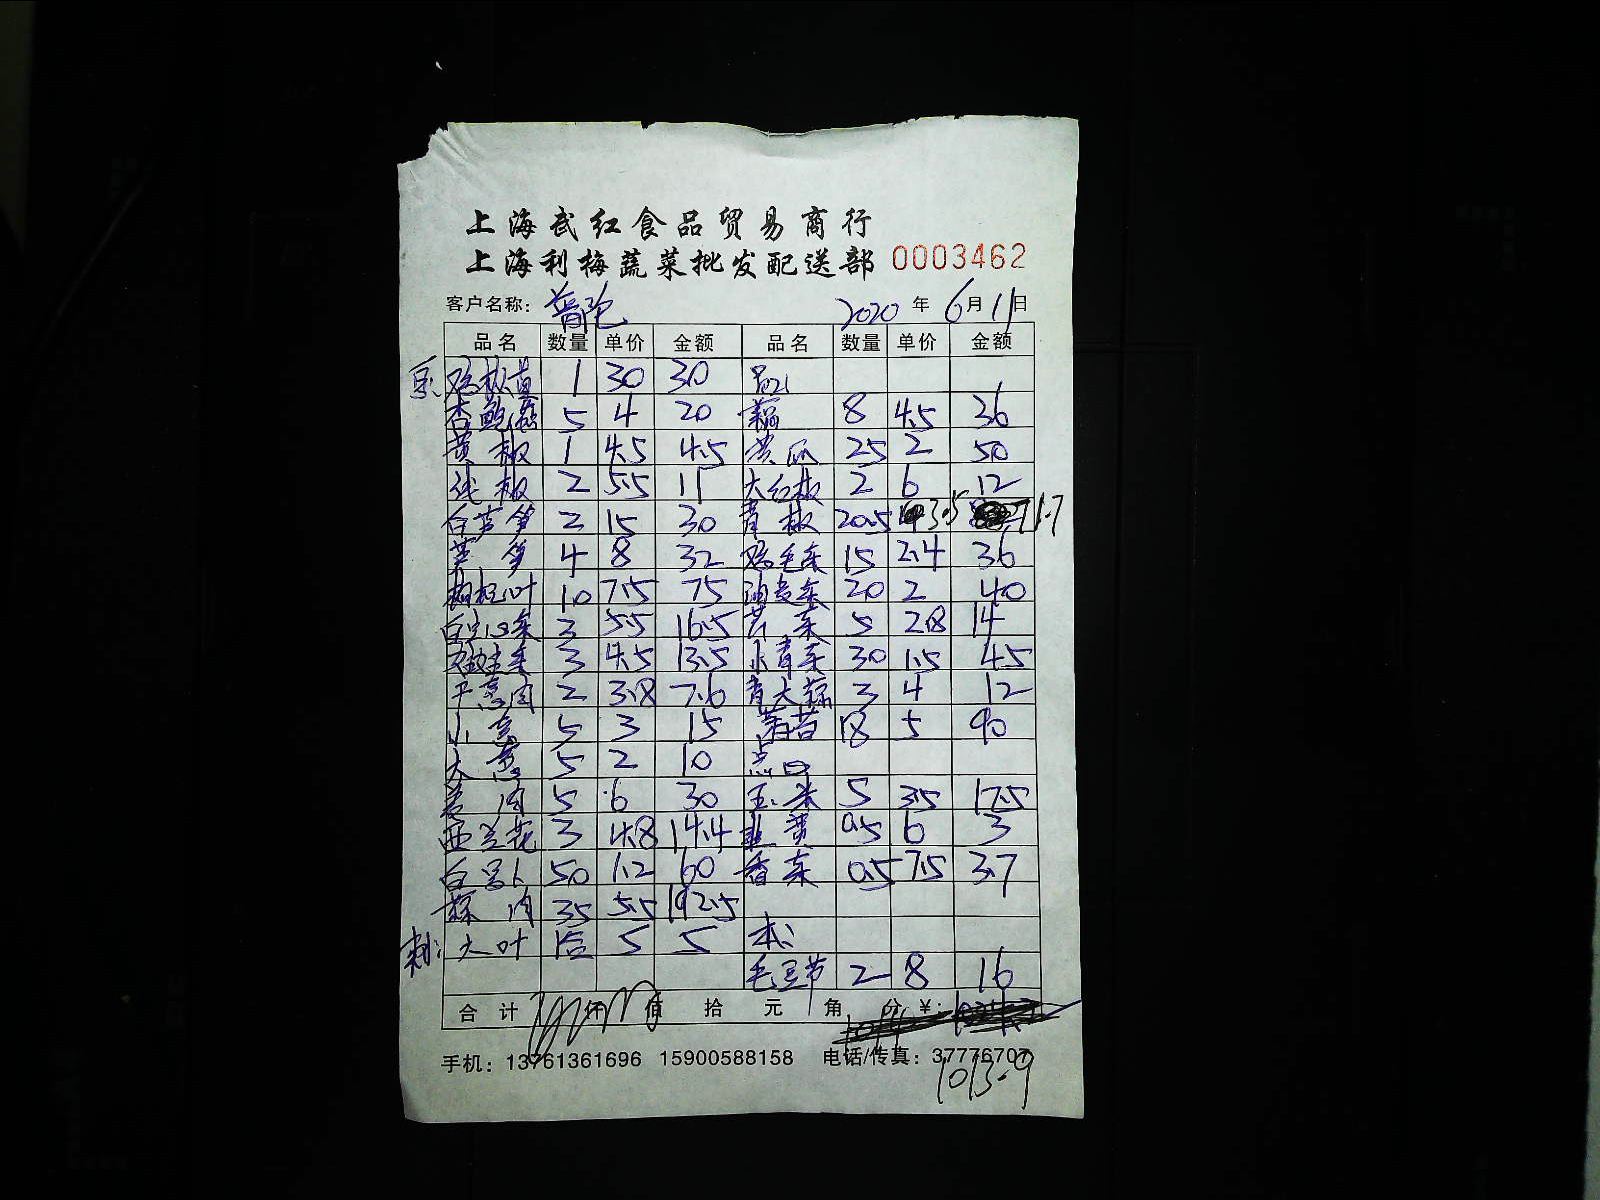 上海武红食品贸易商行
上海利梅蔬菜批发配送部 0003462
客户名称: 普陀 2020 年 6 月 11 日
品名 数量 单价 金额 品名 数量 单价 金额
1 30 30
杏鲍菇 5 4 20 藕 8 4.5 36
黄椒 1 4.5 4.5 黄瓜 25 2 50
线椒 2 5.5 11 大红椒 2 6 12
白芦笋 2 15 30 青椒 20.5 3.5 71.7
芦笋 4 8 32 鸡毛菜 15 2.4 36
10 7.5 75 油麦菜 20 2 40
3 5.5 16.5 芹菜 5 2.8 14
3 4.5 13.5 小青菜 30 1.5 45
干葱肉 2 3.8 7.6 青大蒜 3 4 12
小葱 5 3 15 18 5 90
大葱 5 2 10 点口
姜肉 5 6 30 玉米 5 3.5 17.5
西兰花 3 4.8 14.4 韭黄 0.5 6 3
白萝卜 50 1.2 60 香菜 0.5 7.5 3.7
蒜肉 35 5.5 192.5
大叶 1合 5 5 本:
毛豆节 2 8 16
合计 仟 佰 拾 元 角 分 ¥:
手机: 13761361696 15900588158 电话/传真: 37776707
1013.9